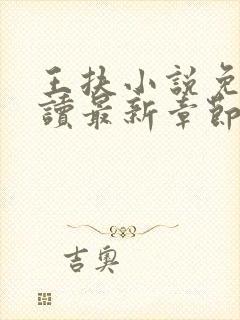 王扶小說免
讀最新章節
吉奧